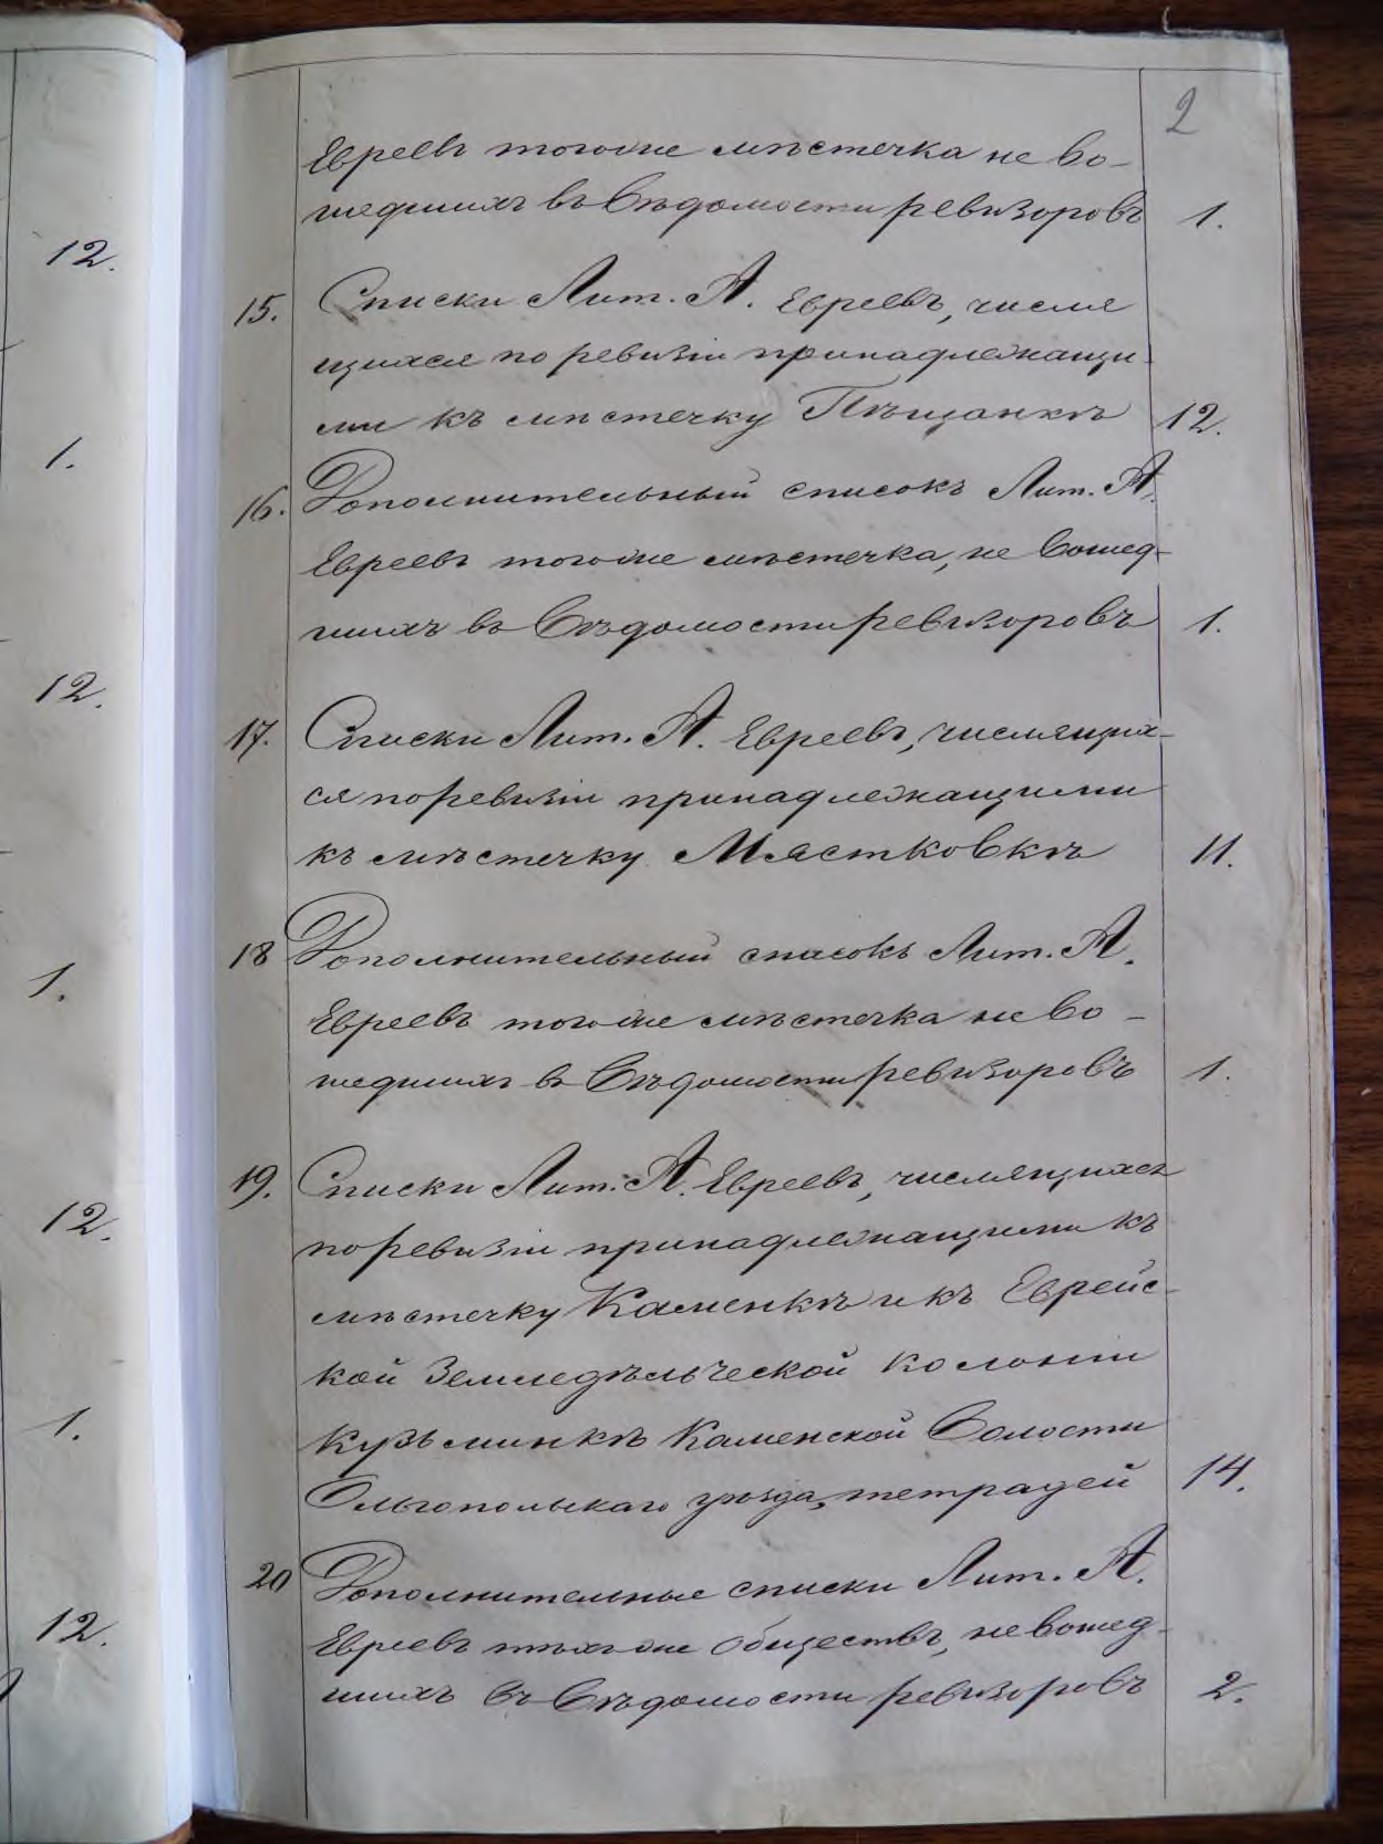 2
Евреевъ того же мѣстечка не во-
шедшихъ въ вѣдомости ревизоровъ 1.
12.
15. Списки Лит. А. Евреевъ, числя
щихся по ревизіи принадлежащи-
ми къ мѣстечку Пѣщанкѣ 12.
1.
16. Дополнительный списокъ Лит. А.
Евреевъ того же мѣстечка, не вошед-
шихъ въ вѣдомости ревизоровъ 1.
12.
17. Списки Лит. А. Евреевъ, числящих-
ся по ревизіи принадлежащими
къ мѣстечку Мястковкѣ 11.
18 Дополнительный списокъ Лит. А.
Евреевъ того же мѣстечка не во-
1.
шедшихъ въ вѣдомости ревизоровъ 1.
19. Списки Лит. А. Евреевъ, числящихся
по ревизіи принадлежащими къ
12.
мѣстечку Каменкѣ и къ Еврейс-
кой Земледѣльческой колоніи
1.
Кузьминкѣ Каменской волости
Ольгопольскаго уѣзда, тетрадей 14.
20 Дополнительные списки Лит. А.
12.
Евреевъ тѣхъ же обществъ, не вошед-
шихъ въ вѣдомости ревизоровъ 2.